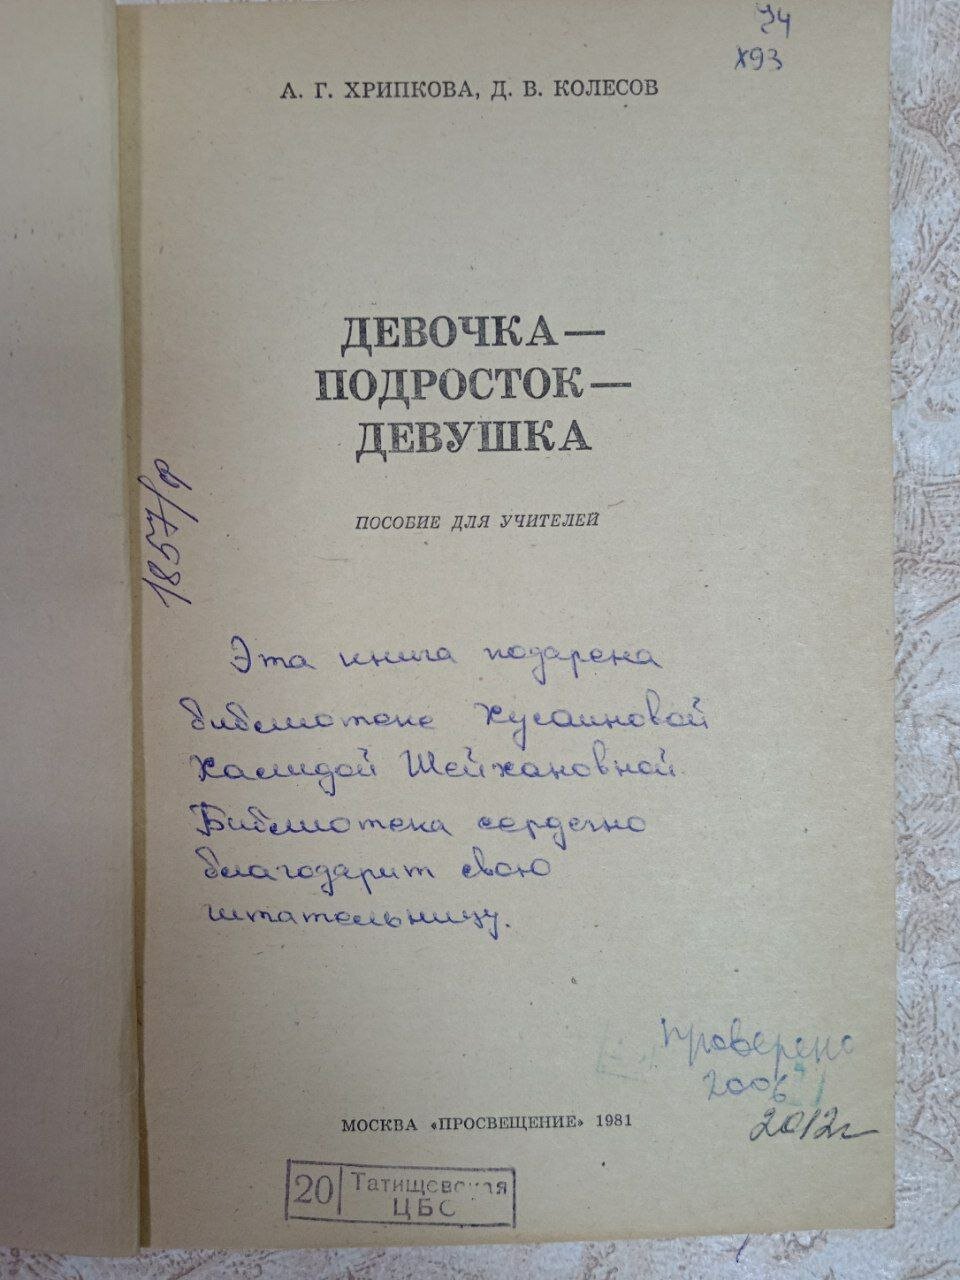 Ч4
Х93
А. Г. ХРИПКОВА, Д. В. КОЛЕСОВ
ДЕВОЧКА —
ПОДРОСТОК —
ДЕВУШКА
ПОСОБИЕ ДЛЯ УЧИТЕЛЕЙ
1857/ф
Эта книга подарена
библиотеке Хусаиновой
Халидой Шейхановной.
Библиотека сердечно
благодарит свою
читательницу.
Проверено
2006
2012г
МОСКВА «ПРОСВЕЩЕНИЕ» 1981
20 Татищевская
ЦБС